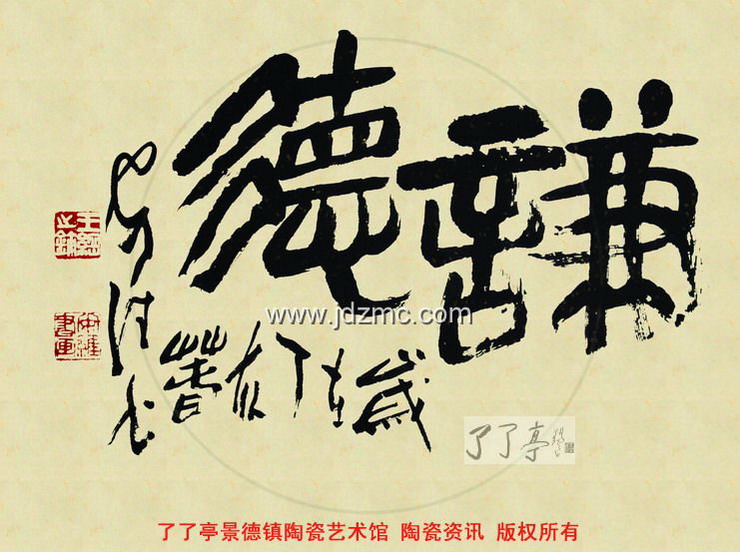 謙德
歲在丁亥春
www.jdzmc.com
了了亭
了了亭景德镇陶瓷艺术馆 陶瓷资讯 版权所有